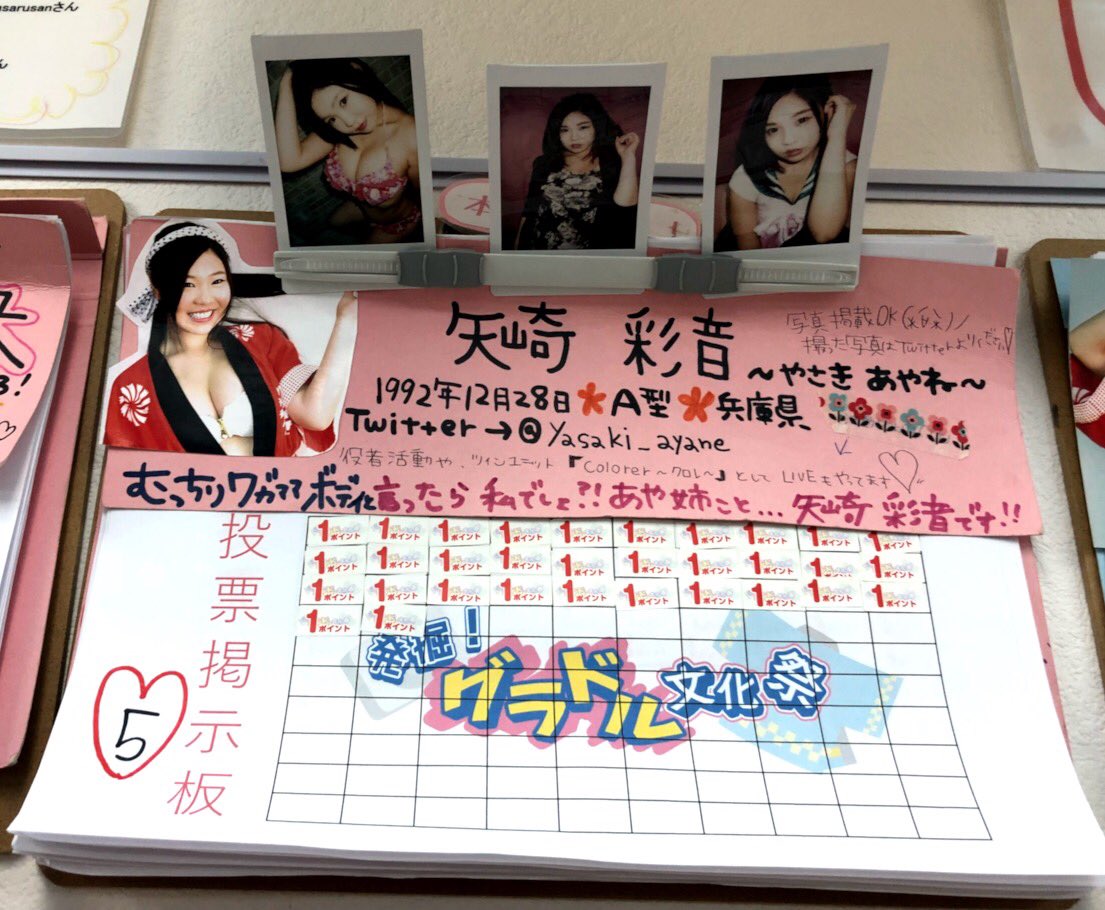 sarusanさん
矢崎 彩音
~やさき あやね~
写真掲載OK
撮った写真はTwitterよりください♡
1992年12月28日 A型 兵庫県
Twitter→@yasaki_ayane
役者活動や、ツインユニット『Colorer~クロレ~』として LIVEもやってます♡
むっちりワガママボディと言ったら私でしょ?!あや姉こと… 矢崎 彩音です!!
投票掲示板
5
1ポイント 1ポイント 1ポイント 1ポイント 1ポイント 1ポイント 1ポイント 1ポイント 1ポイント 1ポイント
1ポイント 1ポイント 1ポイント 1ポイント 1ポイント 1ポイント 1ポイント 1ポイント 1ポイント 1ポイント
1ポイント 1ポイント 1ポイント 1ポイント 1ポイント 1ポイント 1ポイント 1ポイント 1ポイント 1ポイント
1ポイント 1ポイント
発掘!
グラドル
文化祭